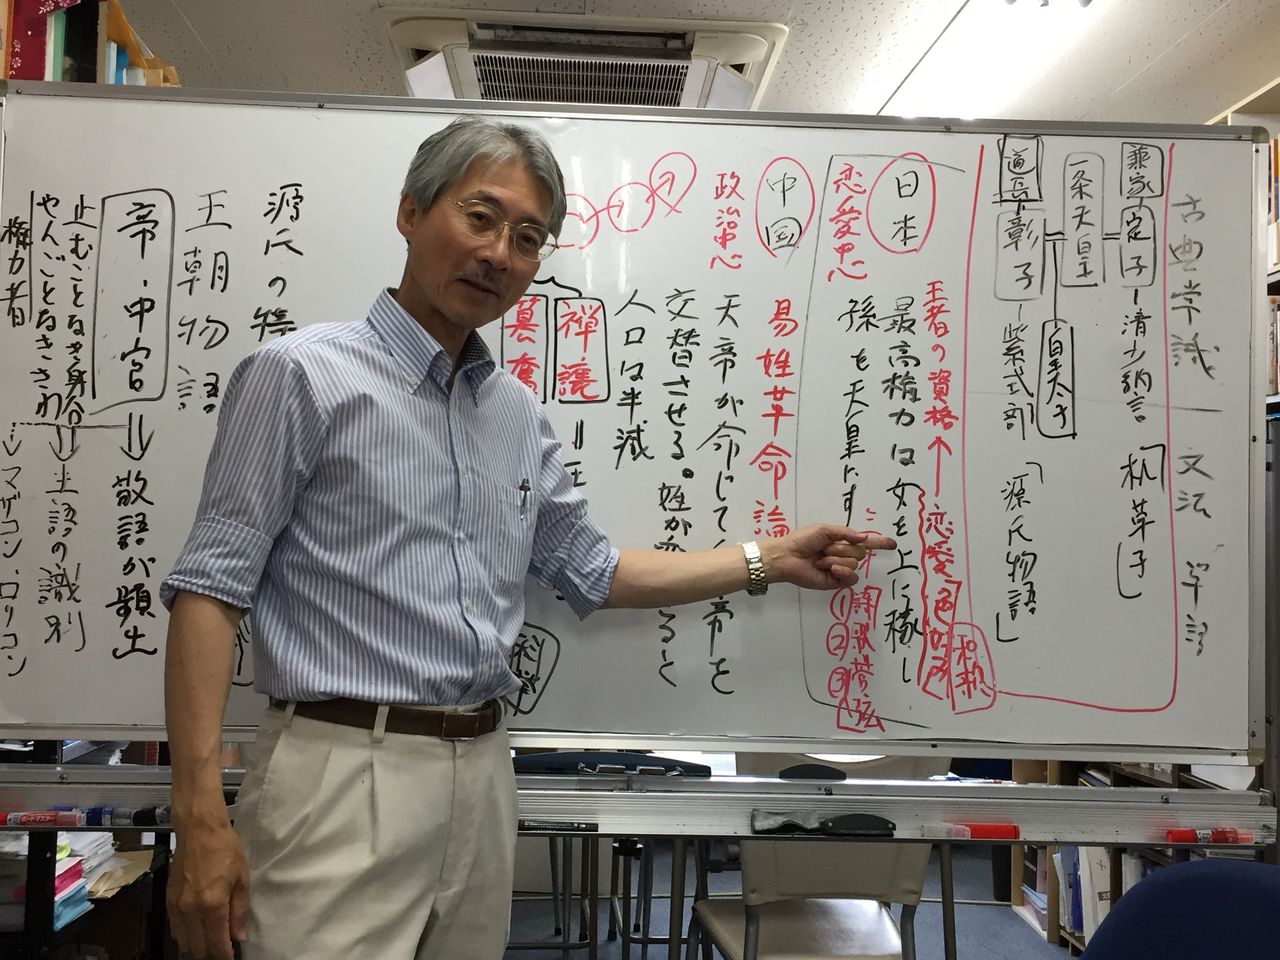 古典常識 文法 単語
兼家 定子 ー 清少納言 「枕草子」
一条天皇 皇太子
道長 彰子 ー 紫式部 「源氏物語」
王者の資格↑
恋愛
和歌
日本
最高権力は女を上に稼し
恋愛中心
孫も天皇にす
①詩
②歌
③管弦
中国
易姓革命論
政治中心
天帝が命じて
帝を
交替させる。姓が
ると
人口は半減
禅譲
簒奪
科挙
源氏の特
王朝物語
帝・中宮 ⇒ 敬語が頻出
止むことなき身分
主語の識別
やんごとなききわ
マザコン・ロリコン
権力者
ボードマスター